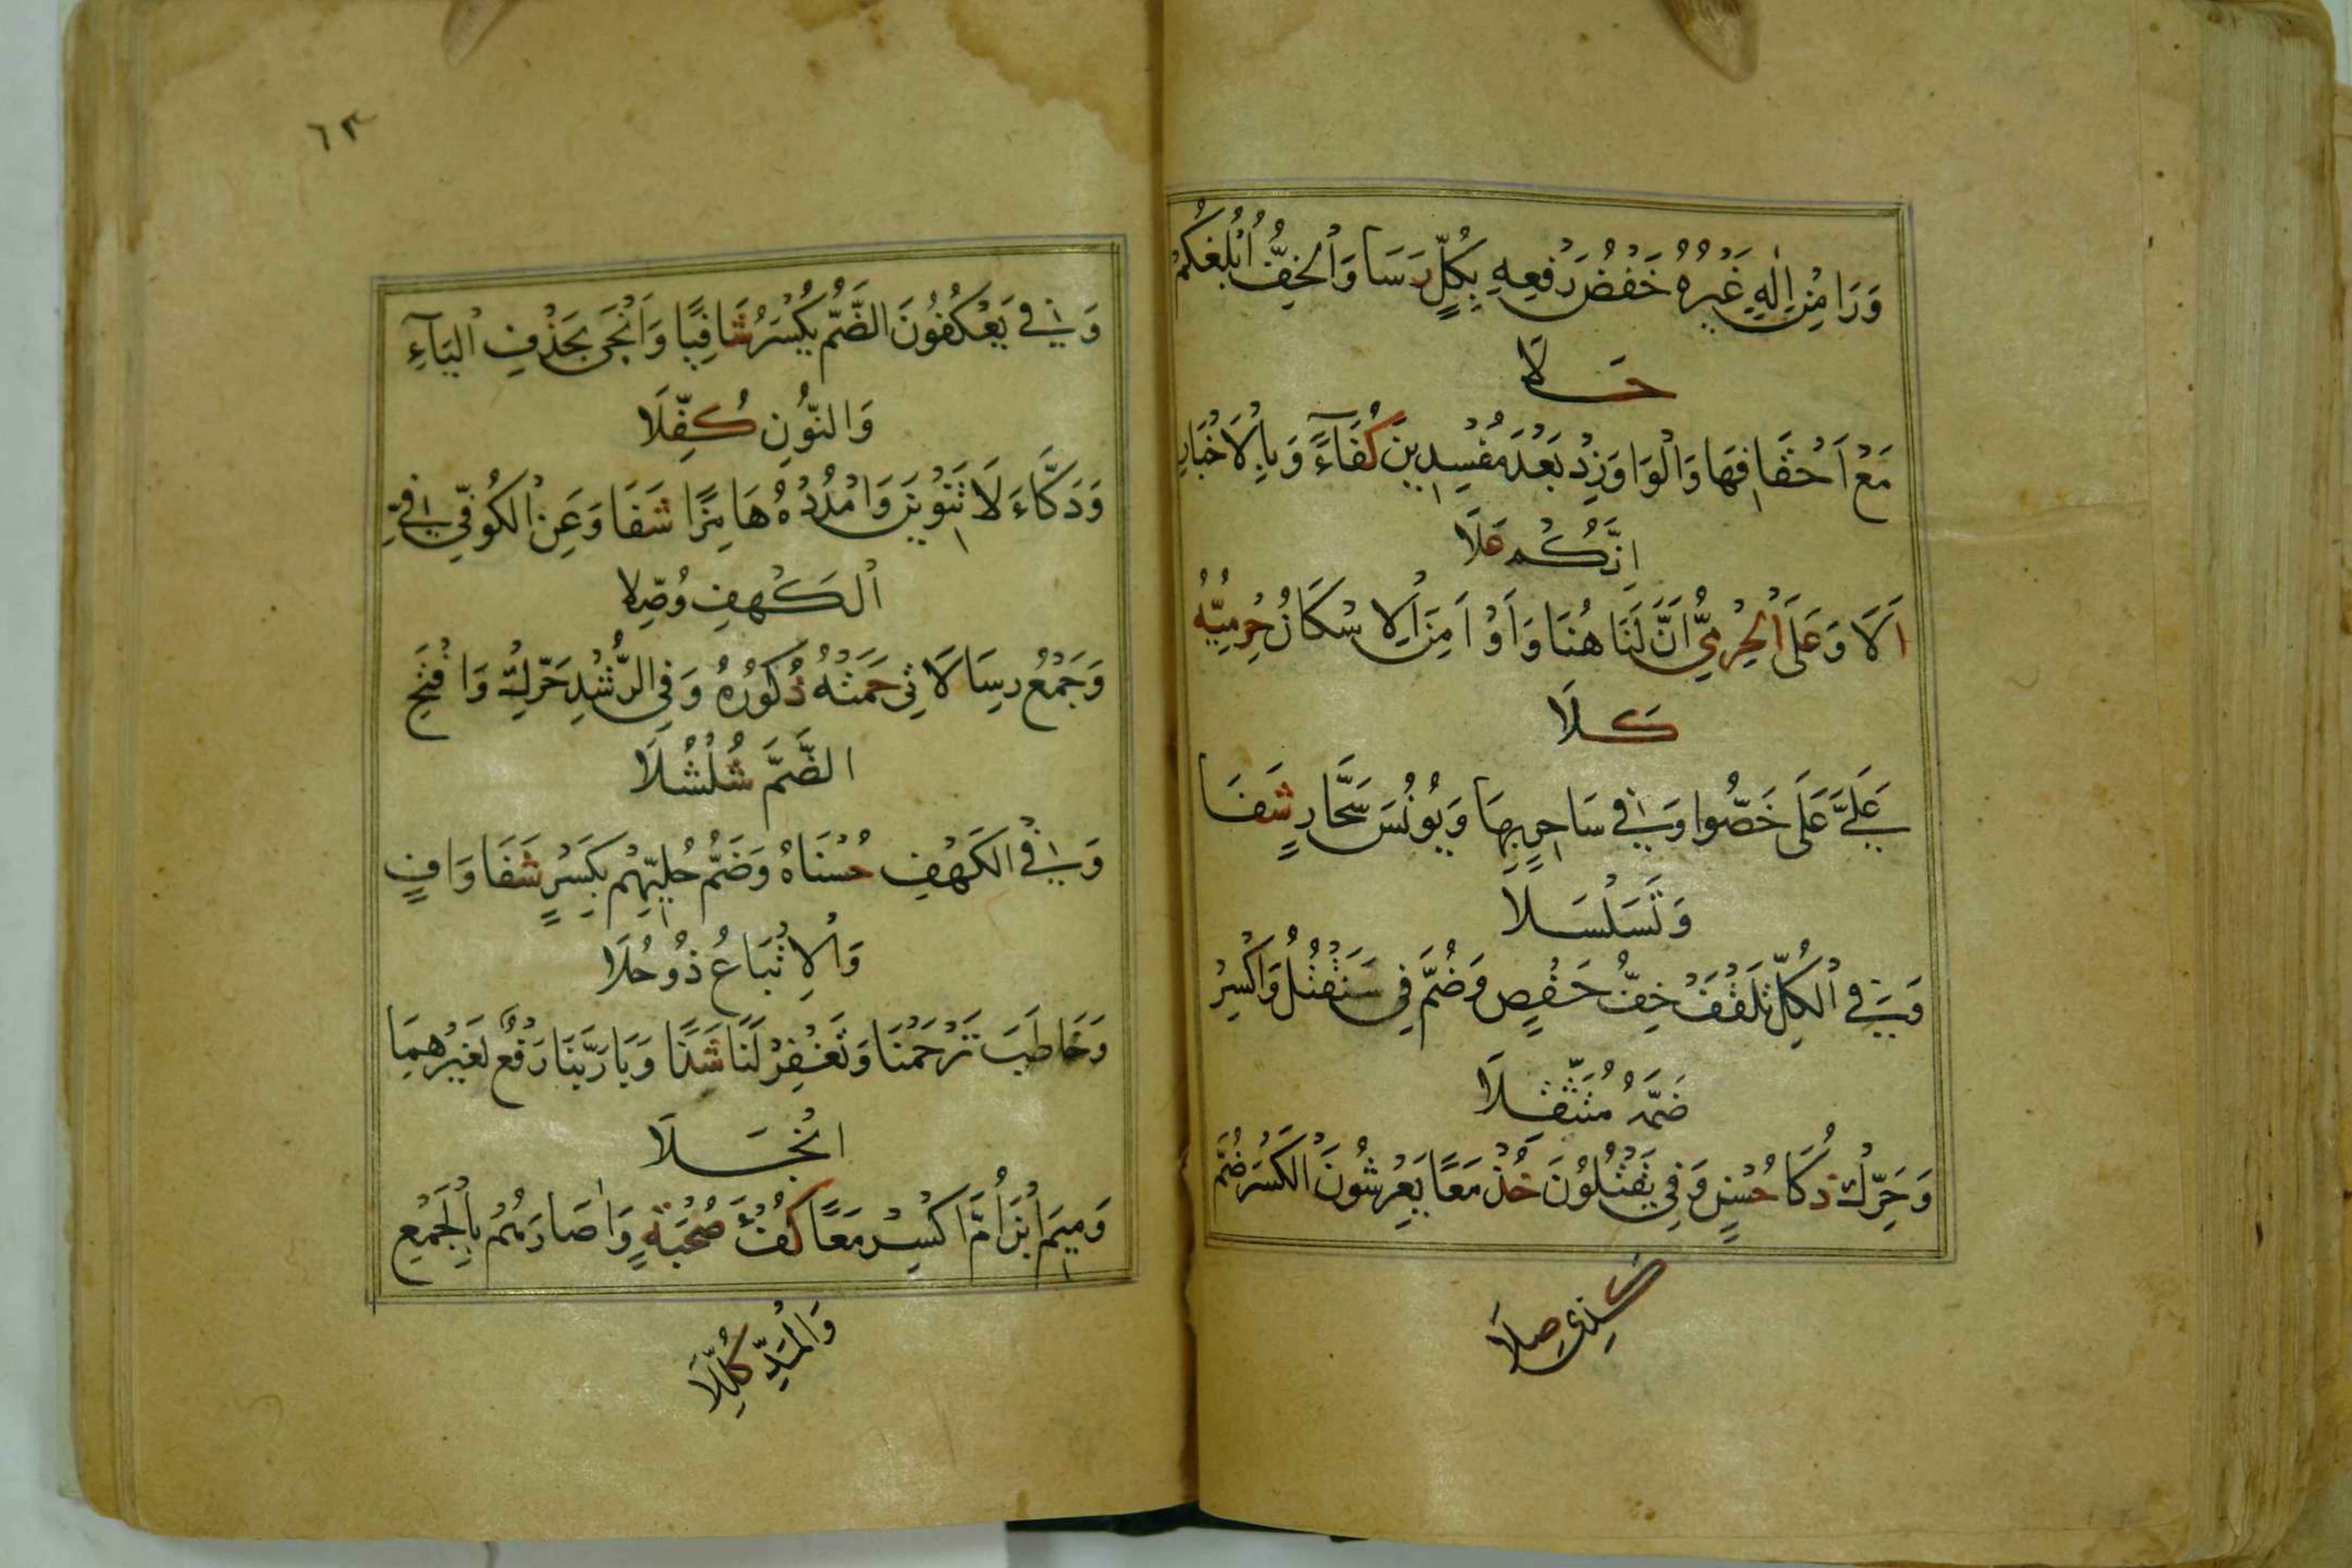 وَرَا مِنْ اِلٰهٍ غَيْرُهُ خَفْضُ رَفْعِهِ بِكُلٍّ رَسَا وَالْخِفُّ اُبْلِغُكُمْ
حَلَا
مَعْ اَحْقَافِهَا وَالْوَاوَ زِدْ بَعْدَ مُفْسِدِينَ كُفْآءً وَبِالْاَخْبَارِ
اِنَّكُمْ عَلَا
اَلَا وَعَلَى الْحِرْمِيُّ اَنَّ لَنَا هُنَا وَاَوْ اَمِنَ الْاِسْكَانُ حِرْمِيُّهُ
كَلَا
عَلَيَّ عَلَى خَصُّوا وَفِي سَاحِرٍ بِهَا وَيُونُسَ سَحَّارٍ شَفَا
وَتَسَلْسَلَا
وَفِي الْكُلِّ تَلْقَفْ خِفُّ حَفْصٍ وَضُمَّ فِي سَنَقْتُلُ وَاكْسِرْ
ضَمَّهُ مُتَثَقِّلَا
وَحَرِّكْ ذَكَا حُسْنٍ وَفِي يَقْتُلُونَ خُذْ مَعًا يَعْرِشُونَ الْكَسْرَ ضُمَّ
كَذِي صِلَا
٦٣
وَفِي يَعْكُفُونَ الضَّمُّ يُكْسَرُ شَافِيًا وَاَنْجَى بِحَذْفِ الْيَآءِ
وَالنُّونِ كُفِّلَا
وَدَكَّاءَ لَا تَنْوِينَ وَامْدُدْهُ هَامِزًا شَفَا وَعَنِ الْكُوفِيِّ فِي
الْكَهْفِ وُصِّلَا
وَجَمْعُ رِسَالَاتِي حَمَتْهُ ذُكُورُهُ وَفِي الرُّشْدِ حَرِّكْ وَافْتَحِ
الضَّمَّ شُلْشُلَا
وَفِي الْكَهْفِ حُسْنَاهُ وَضَمُّ حُلِيِّهِمْ بِكَسْرٍ شَفَا وَافٍ
وَالْاِتْبَاعُ ذُو حُلَا
وَخَاطَبَ تَرْحَمْنَا وَتَغْفِرْ لَنَا شَذًا وَبَا رَبَّنَا رَفْعٌ لِغَيْرِهِمَا
انْجَلَا
وَمِيمَ ابْنَ اُمَّ اكْسِرْ مَعًا كُفْؤَ صُحْبَةٍ وَاٰصَارَهُمْ بِالْجَمْعِ
وَالْمَدِّ كُلِّلَا